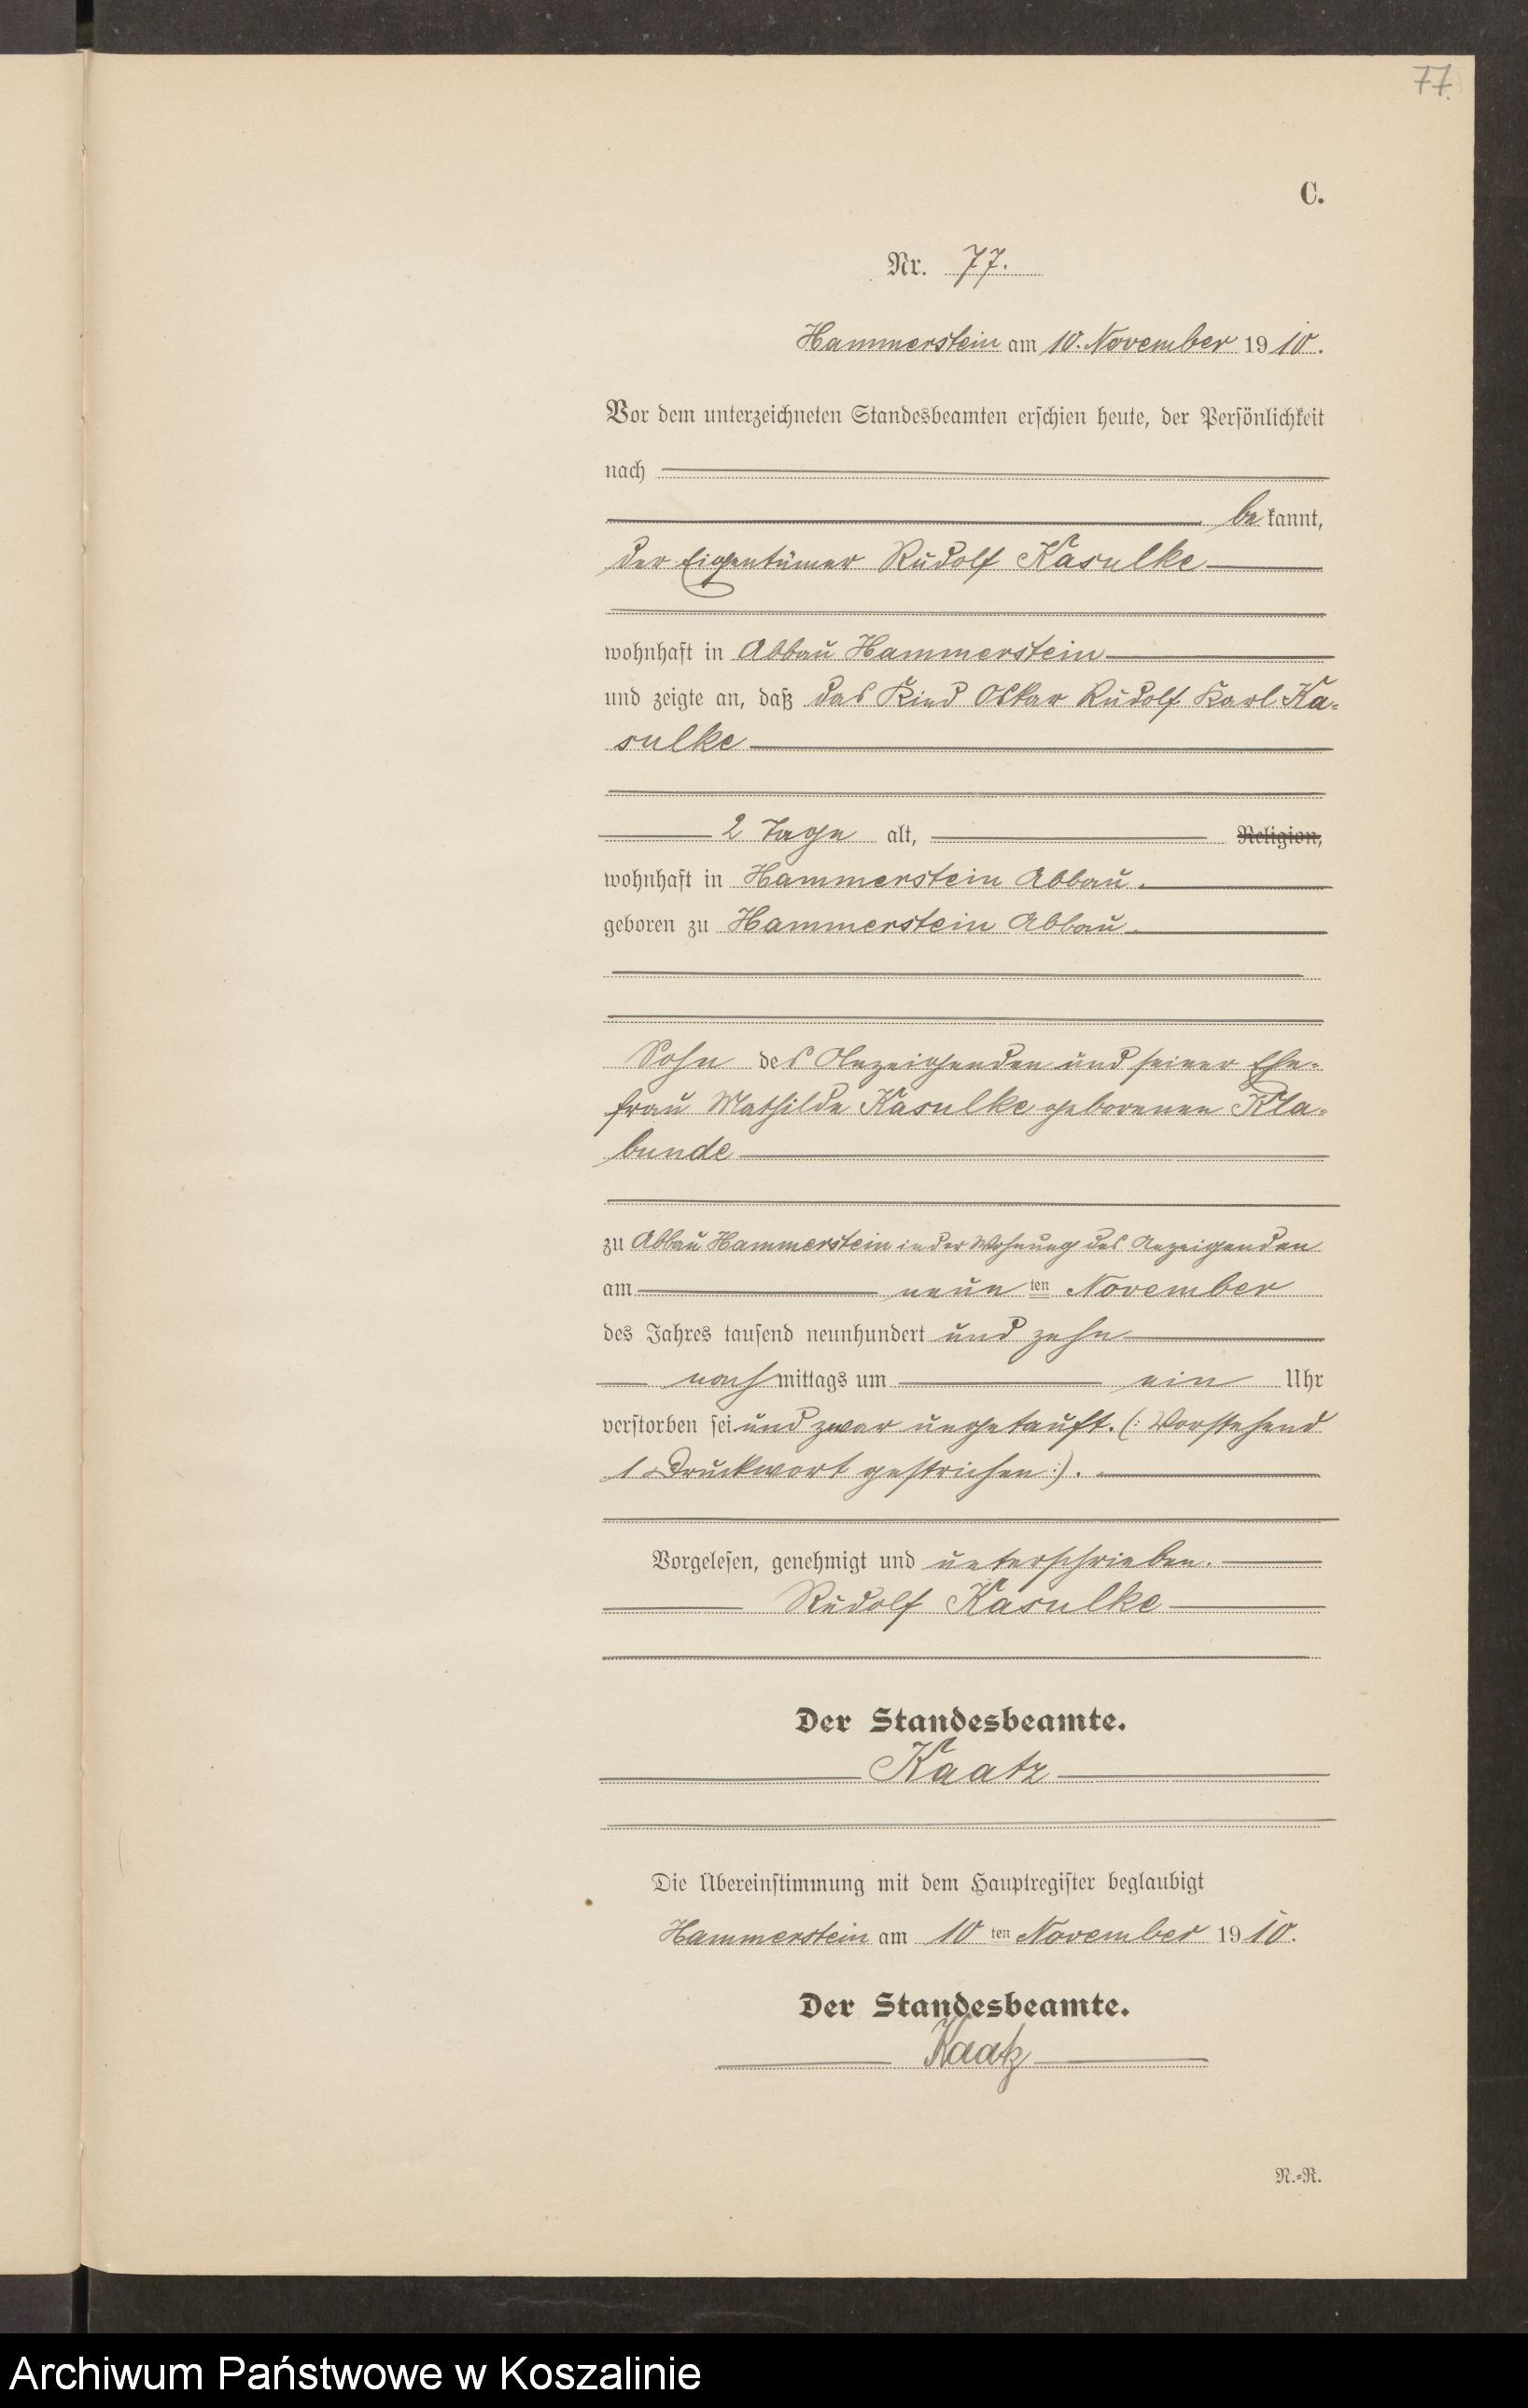 77.
C.
Nr. 77.
Hammerstein am 10. November 1910.
Vor dem unterzeichneten Standesbeamten erschien heute, der Persönlichkeit
nach
bekannt,
der Eigentümer Rudolf Kasulke
wohnhaft in Abbau Hammerstein
und zeigte an, daß das Kind Oskar Rudolf Karl Ka-
sulke
2 Tage alt, Religion,
wohnhaft in Hammerstein Abbau.
geboren zu Hammerstein Abbau.
Sohn des Anzeigenden und seiner Ehe-
frau Mathilde Kasulke geborenen Kla-
bunde
zu Abbau Hammerstein in der Wohnung des Anzeigenden
am neun ten November
des Jahres tausend neunhundert und zehn
nachmittags um ein Uhr
verstorben sei und zwar ungetauft. (: Vorstehend
1 Druckwort gestrichen :).
Vorgelesen, genehmigt und unterschrieben.
Rudolf Kasulke
Der Standesbeamte.
Kaatz
Die Übereinstimmung mit dem Hauptregister beglaubigt
Hammerstein am 10 ten November 1910.
Der Standesbeamte.
Kaatz
N.-R.
Archiwum Państwowe w Koszalinie